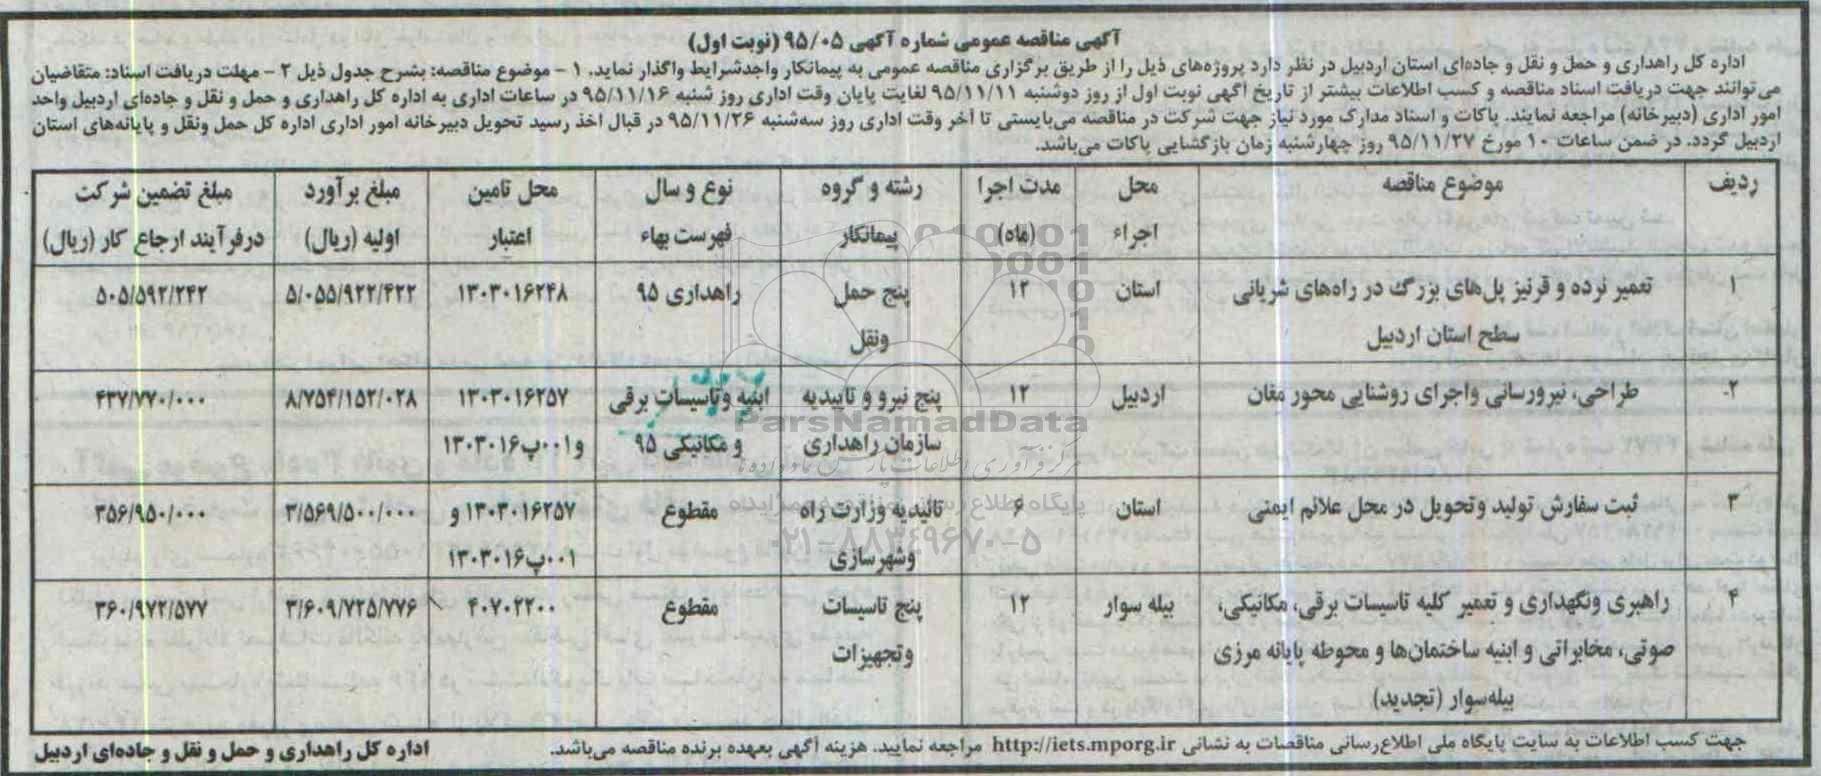 آگهی مناقصه عمومی شماره آگهی ۹۵/۰۵ (نوبت اول)
اداره کل راهداری و حمل و نقل و جاده‌ای استان اردبیل در نظر دارد پروژه‌های ذیل را از طریق برگزاری مناقصه عمومی به پیمانکار واجدشرایط واگذار نماید. ۱ - موضوع مناقصه: بشرح جدول ذیل ۲ - مهلت دریافت اسناد: متقاضیان
می‌توانند جهت دریافت اسناد مناقصه و کسب اطلاعات بیشتر از تاریخ آگهی نوبت اول از روز دوشنبه ۹۵/۱۱/۱۱ لغایت پایان وقت اداری روز شنبه ۹۵/۱۱/۱۶ در ساعات اداری به اداره کل راهداری و حمل و نقل و جاده‌ای اردبیل واحد
امور اداری (دبیرخانه) مراجعه نمایند. پاکات و اسناد مدارک مورد نیاز جهت شرکت در مناقصه می‌بایستی تا آخر وقت اداری روز سه‌شنبه ۹۵/۱۱/۲۶ در قبال اخذ رسید تحویل دبیرخانه امور اداری اداره کل حمل ونقل و پایانه‌های استان
اردبیل گردد. در ضمن ساعات ۱۰ مورخ ۹۵/۱۱/۲۷ روز چهارشنبه زمان بازگشایی پاکات می‌باشد.
ردیف موضوع مناقصه محل مدت اجرا رشته و گروه نوع و سال محل تامین مبلغ برآورد مبلغ تضمین شرکت
اجراء (ماه) پیمانکار فهرست بهاء اعتبار اولیه (ریال) درفرآیند ارجاع کار (ریال)
۱ تعمیر نرده و قرنیز پل‌های بزرگ در راه‌های شریانی استان ۱۲ پنج حمل راهداری ۹۵ ۱۳۰۳۰۱۶۲۴۸ ۵/۰۵۵/۹۲۲/۴۲۲ ۵۰۵/۵۹۲/۲۴۲
سطح استان اردبیل ونقل
۲- طراحی، نیرورسانی واجرای روشنایی محور مغان اردبیل ۱۲ پنج نیرو و تاییدیه ابنیه وتاسیسات برقی ۱۳۰۳۰۱۶۲۵۷ ۸/۷۵۴/۱۵۲/۰۲۸ ۴۳۷/۷۷۰/۰۰۰
سازمان راهداری و مکانیکی ۹۵ و۰۰۱پ۱۳۰۳۰۱۶
۳ ثبت سفارش تولید وتحویل در محل علائم ایمنی استان ۶ تائیدیه وزارت راه مقطوع ۱۳۰۳۰۱۶۲۵۷ و ۳/۵۶۹/۵۰۰/۰۰۰ ۳۵۶/۹۵۰/۰۰۰
وشهرسازی ۰۰۱پ۱۳۰۳۰۱۶
۴ راهبری ونگهداری و تعمیر کلیه تاسیسات برقی، مکانیکی، بیله سوار ۱۲ پنج تاسیسات مقطوع ۴۰۷۰۲۲۰۰ ۳/۶۰۹/۷۲۵/۷۷۶ ۳۶۰/۹۷۲/۵۷۷
صوتی، مخابراتی و ابنیه ساختمان‌ها و محوطه پایانه مرزی وتجهیزات
بیله‌سوار (تجدید)
جهت کسب اطلاعات به سایت پایگاه ملی اطلاع‌رسانی مناقصات به نشانی http://iets.mporg.ir مراجعه نمایید. هزینه آگهی بعهده برنده مناقصه می‌باشد. اداره کل راهداری و حمل و نقل و جاده‌ای اردبیل
ParsNamadData
۰۲۱-۸۸۳۴۹۶۷۰-۵